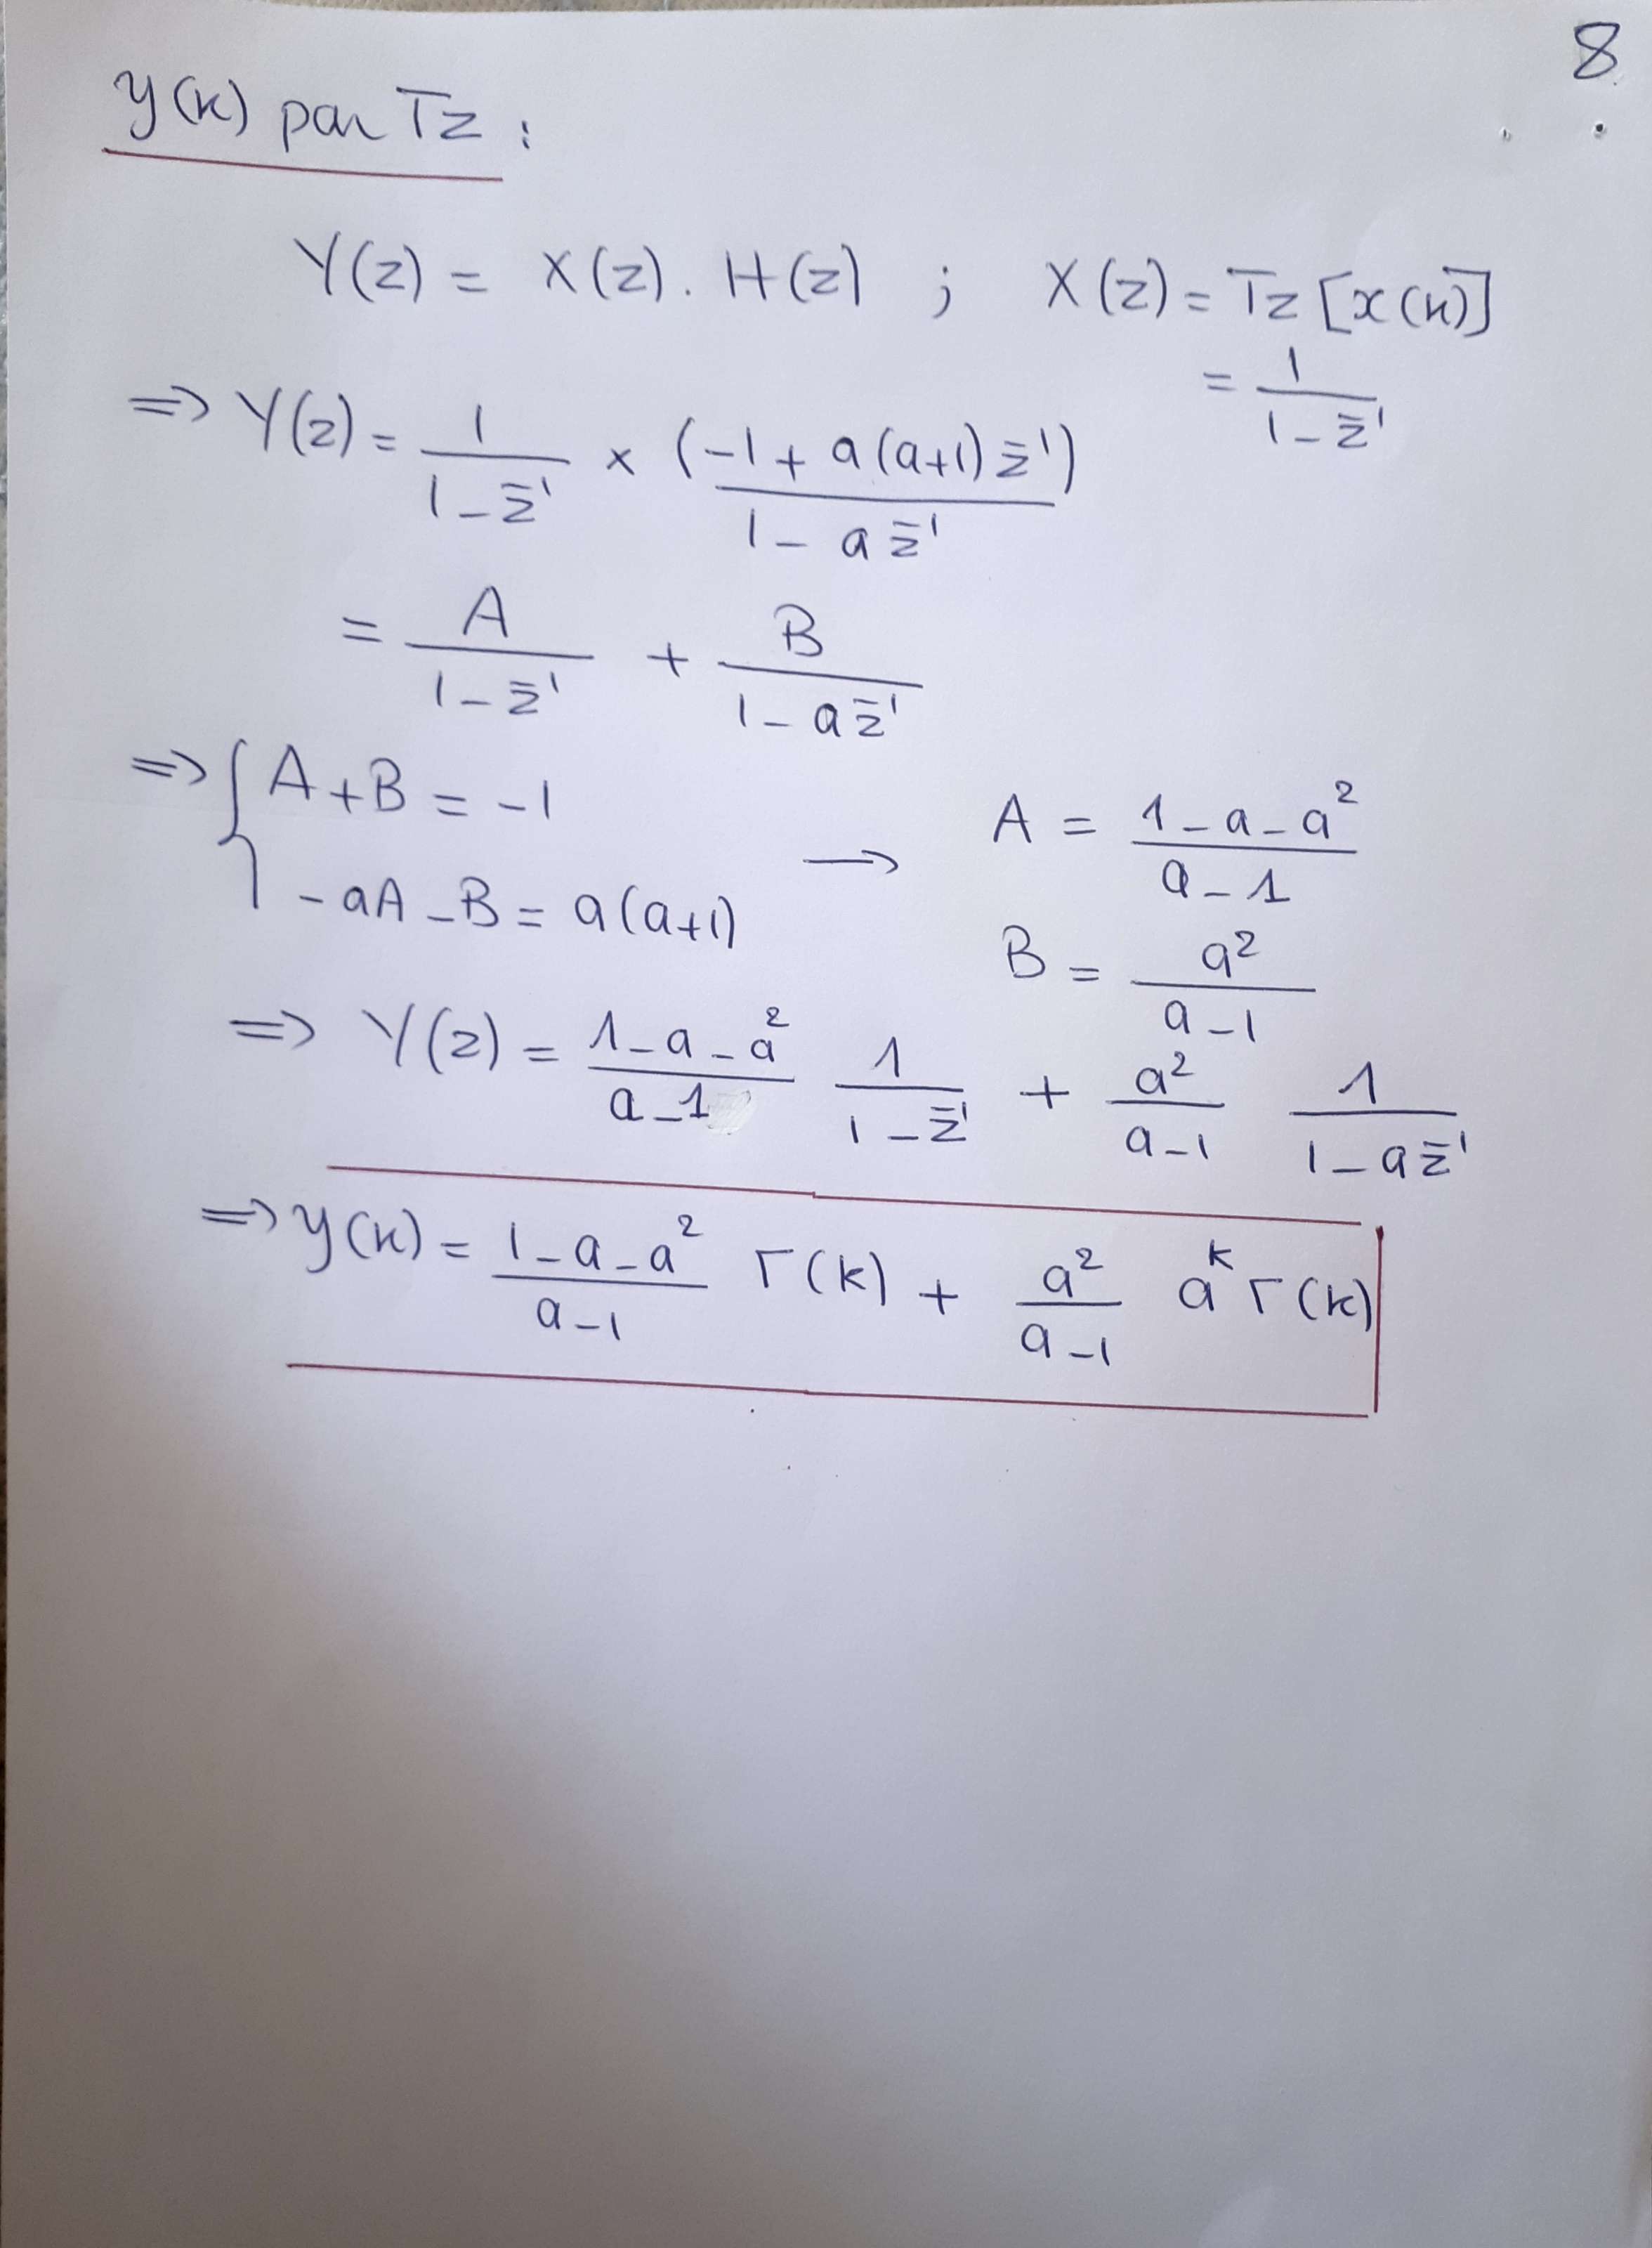 8
y(k) par Tz :
Y(z) = X(z) . H(z) ; X(z) = Tz [x(k)]
= 1/(1 - z⁻¹)
=> Y(z) = 1/(1 - z⁻¹) × (-1 + a(a+1)z⁻¹)/(1 - az⁻¹)
= A/(1 - z⁻¹) + B/(1 - az⁻¹)
=> { A + B = -1
-aA - B = a(a+1)
→ A = (1 - a - a²)/(a - 1)
B = a²/(a - 1)
=> Y(z) = (1 - a - a²)/(a - 1) 1/(1 - z⁻¹) + a²/(a - 1) 1/(1 - az⁻¹)
=> y(k) = (1 - a - a²)/(a - 1) Γ(k) + a²/(a - 1) aᵏ Γ(k)